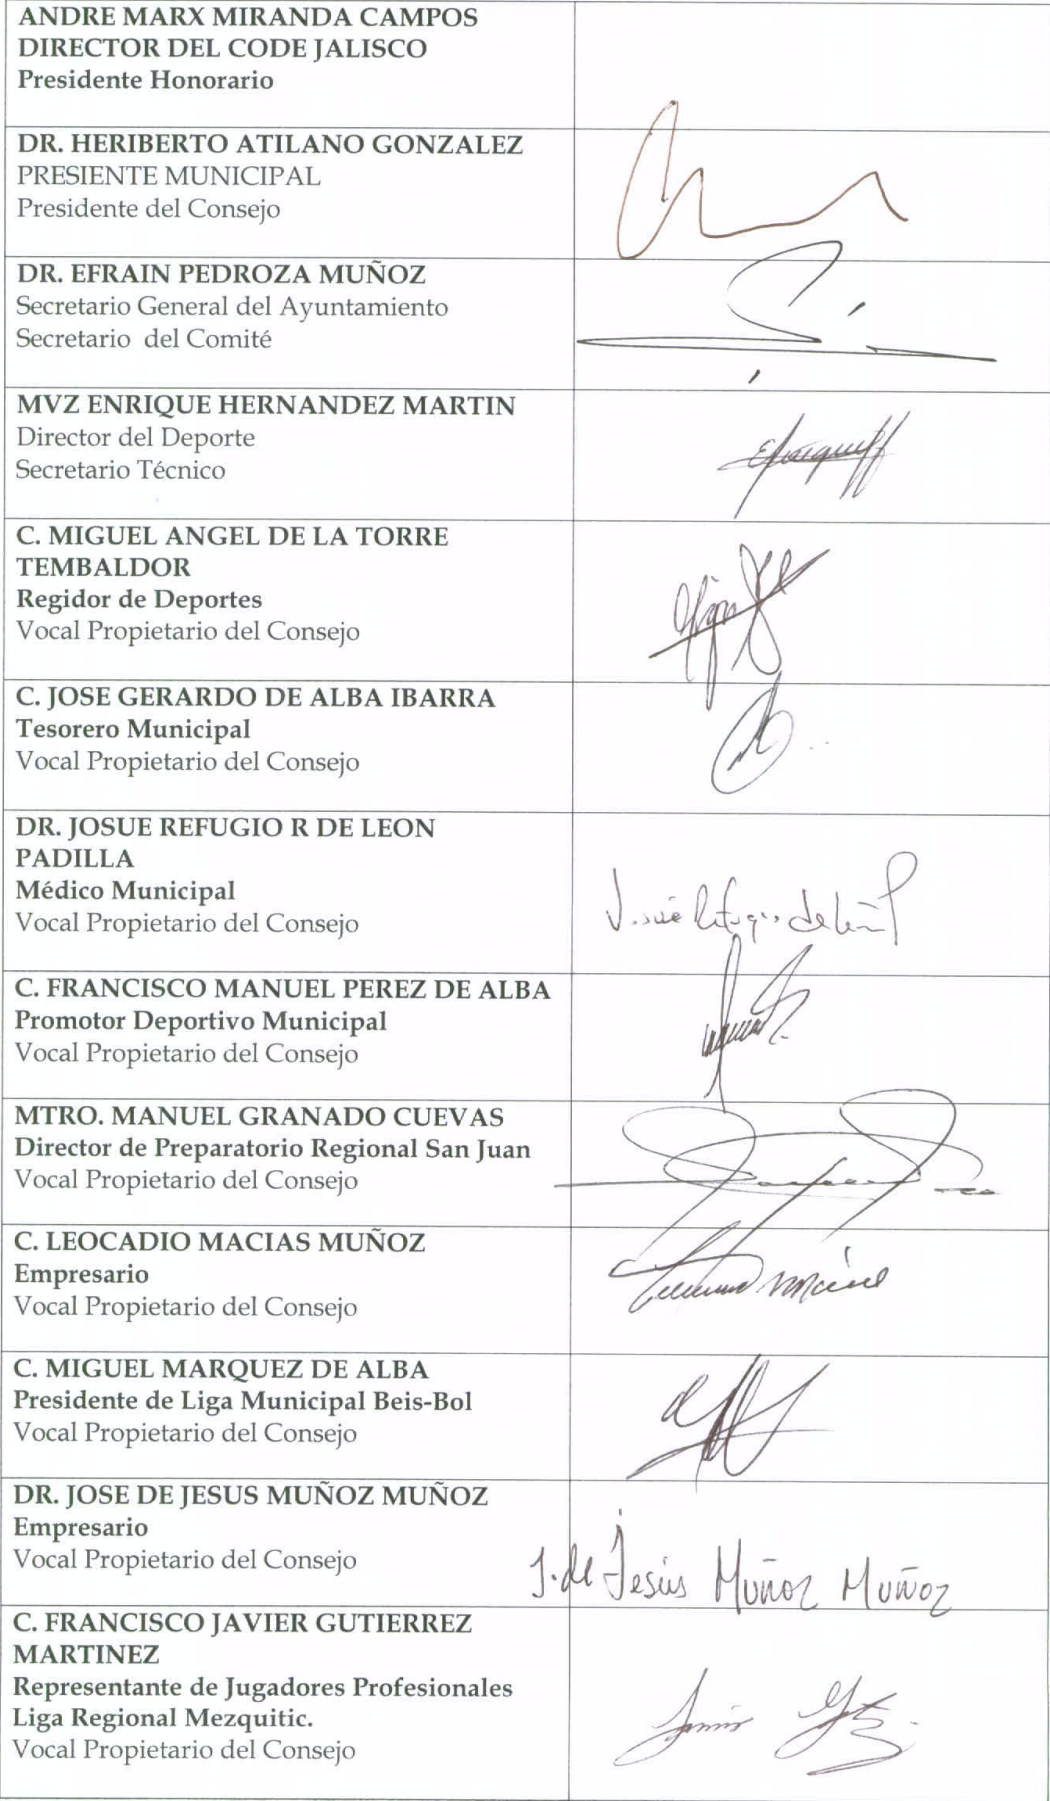 ANDRE MARX MIRANDA CAMPOS
DIRECTOR DEL CODE JALISCO
Presidente Honorario
DR. HERIBERTO ATILANO GONZALEZ
PRESIENTE MUNICIPAL
Presidente del Consejo
DR. EFRAIN PEDROZA MUÑOZ
Secretario General del Ayuntamiento
Secretario del Comité
MVZ ENRIQUE HERNANDEZ MARTIN
Director del Deporte
Secretario Técnico
C. MIGUEL ANGEL DE LA TORRE
TEMBALDOR
Regidor de Deportes
Vocal Propietario del Consejo
C. JOSE GERARDO DE ALBA IBARRA
Tesorero Municipal
Vocal Propietario del Consejo
DR. JOSUE REFUGIO R DE LEON
PADILLA
Médico Municipal
Vocal Propietario del Consejo
Josué Refugio de León
C. FRANCISCO MANUEL PEREZ DE ALBA
Promotor Deportivo Municipal
Vocal Propietario del Consejo
MTRO. MANUEL GRANADO CUEVAS
Director de Preparatorio Regional San Juan
Vocal Propietario del Consejo
C. LEOCADIO MACIAS MUÑOZ
Empresario
Vocal Propietario del Consejo
C. MIGUEL MARQUEZ DE ALBA
Presidente de Liga Municipal Beis-Bol
Vocal Propietario del Consejo
DR. JOSE DE JESUS MUÑOZ MUÑOZ
Empresario
Vocal Propietario del Consejo
J. de Jesús Muñoz Muñoz
C. FRANCISCO JAVIER GUTIERREZ
MARTINEZ
Representante de Jugadores Profesionales
Liga Regional Mezquitic.
Vocal Propietario del Consejo